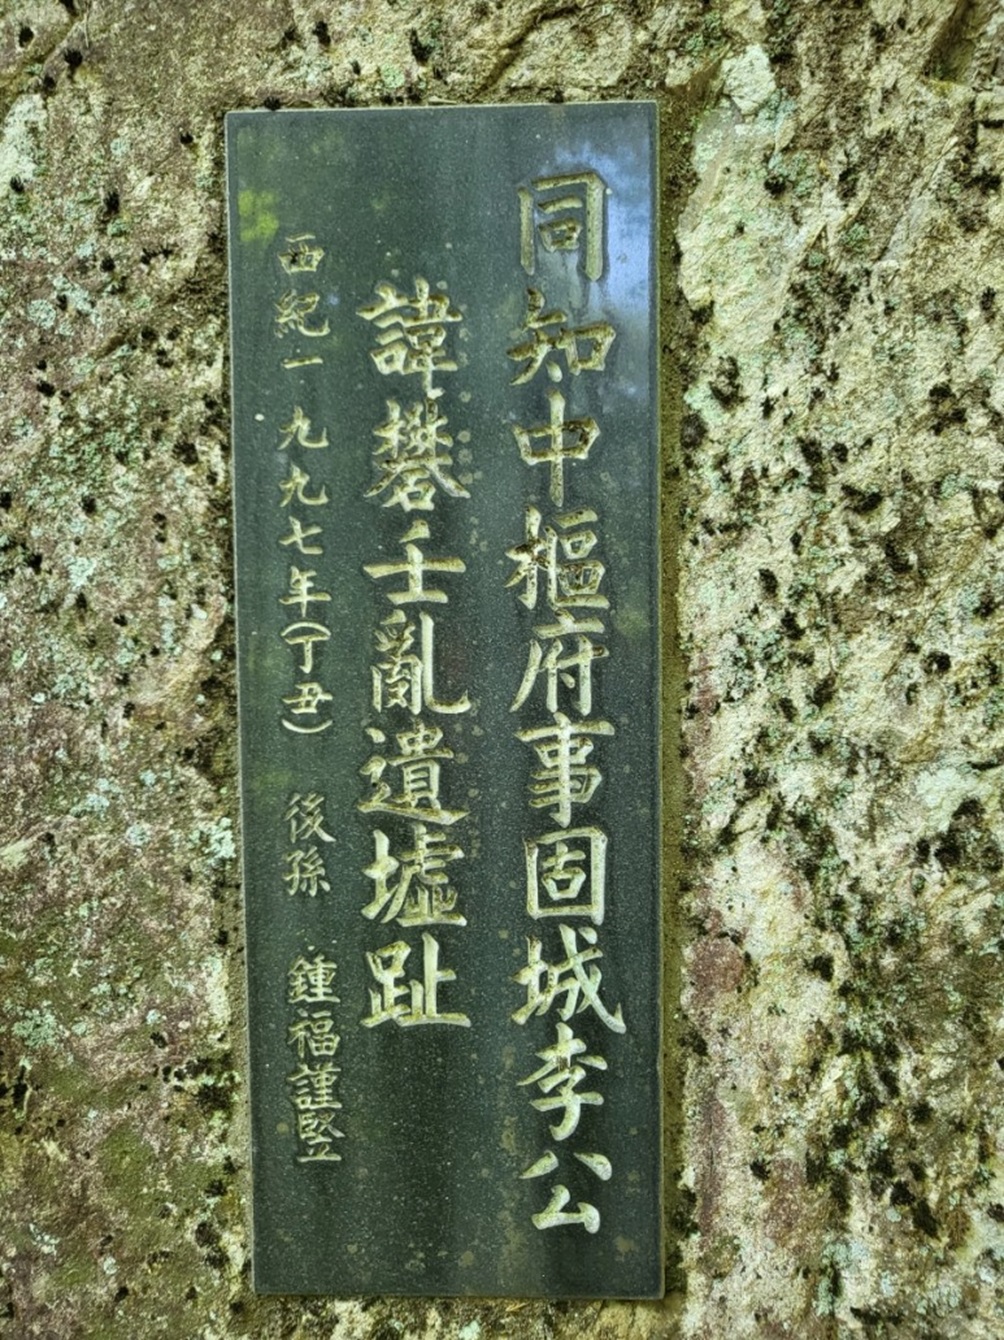 同知中樞府事固城李公
諱礬壬亂遺墟趾
西紀一九九七年(丁丑) 後孫 鍾福謹竪